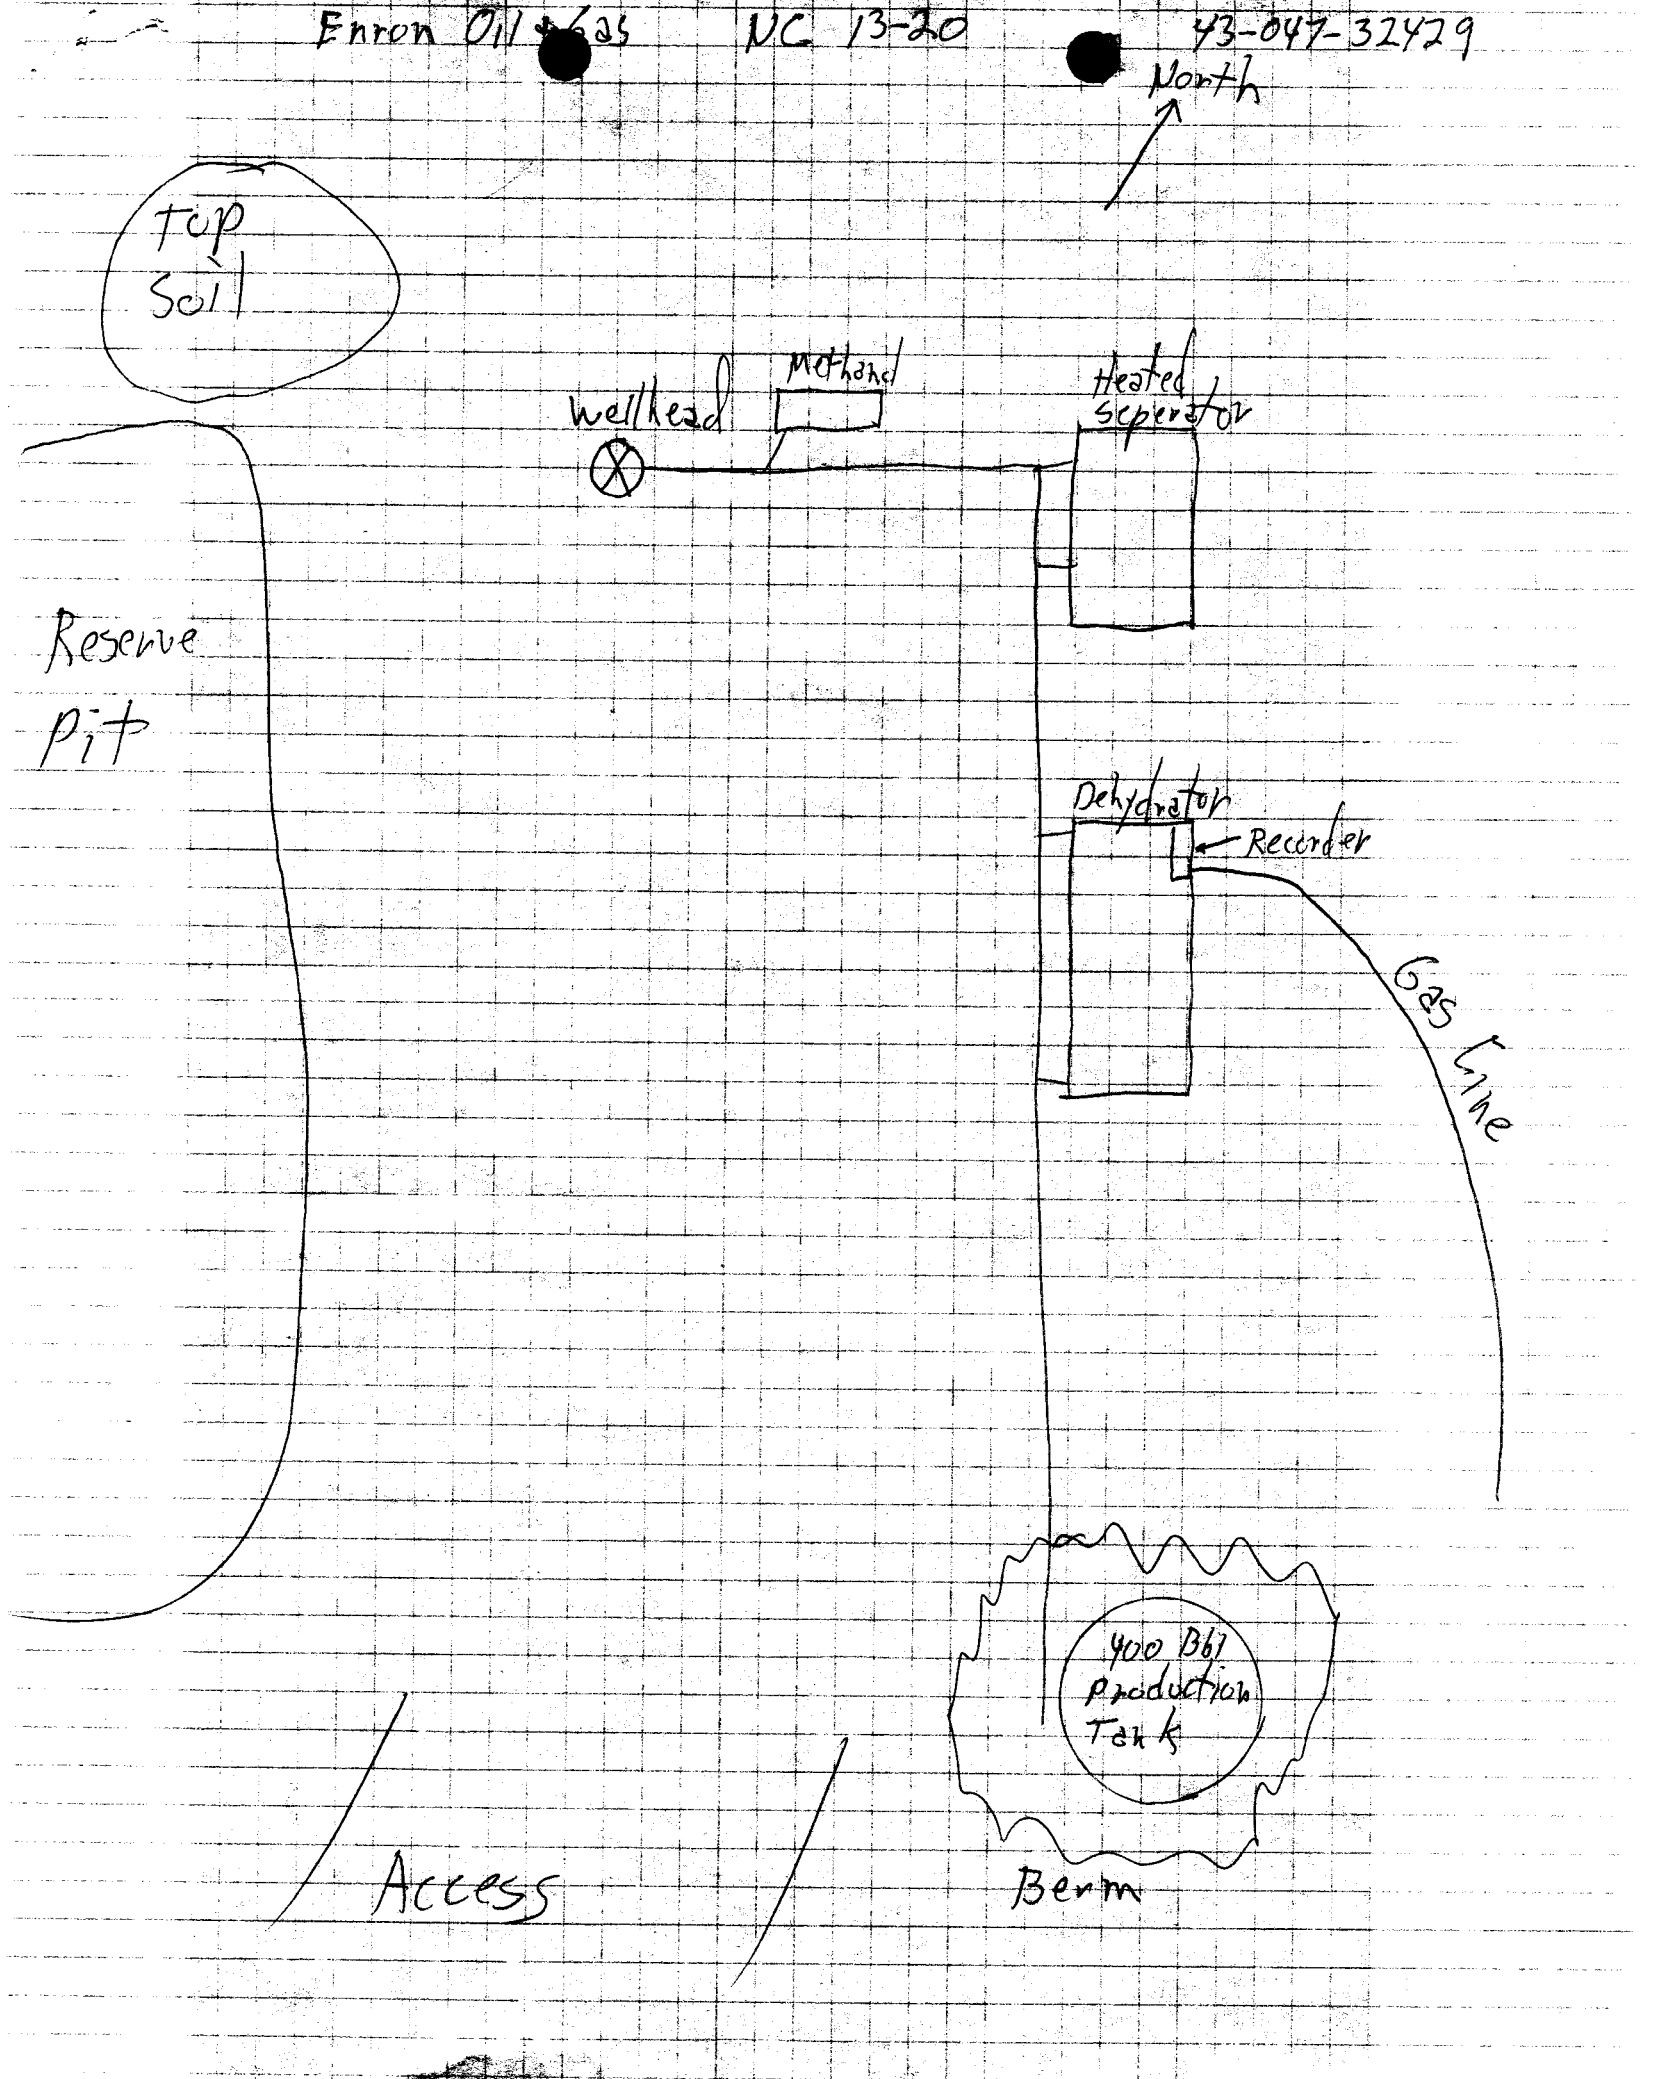 Enron Oil & Gas NC 13-20 43-047-32429
North
Top
Soil
Methanol
Wellhead
Heated
Seperator
Reserve
Pit
Dehydrator
Recorder
Gas Line
400 Bbl
Production
Tank
Access
Berm